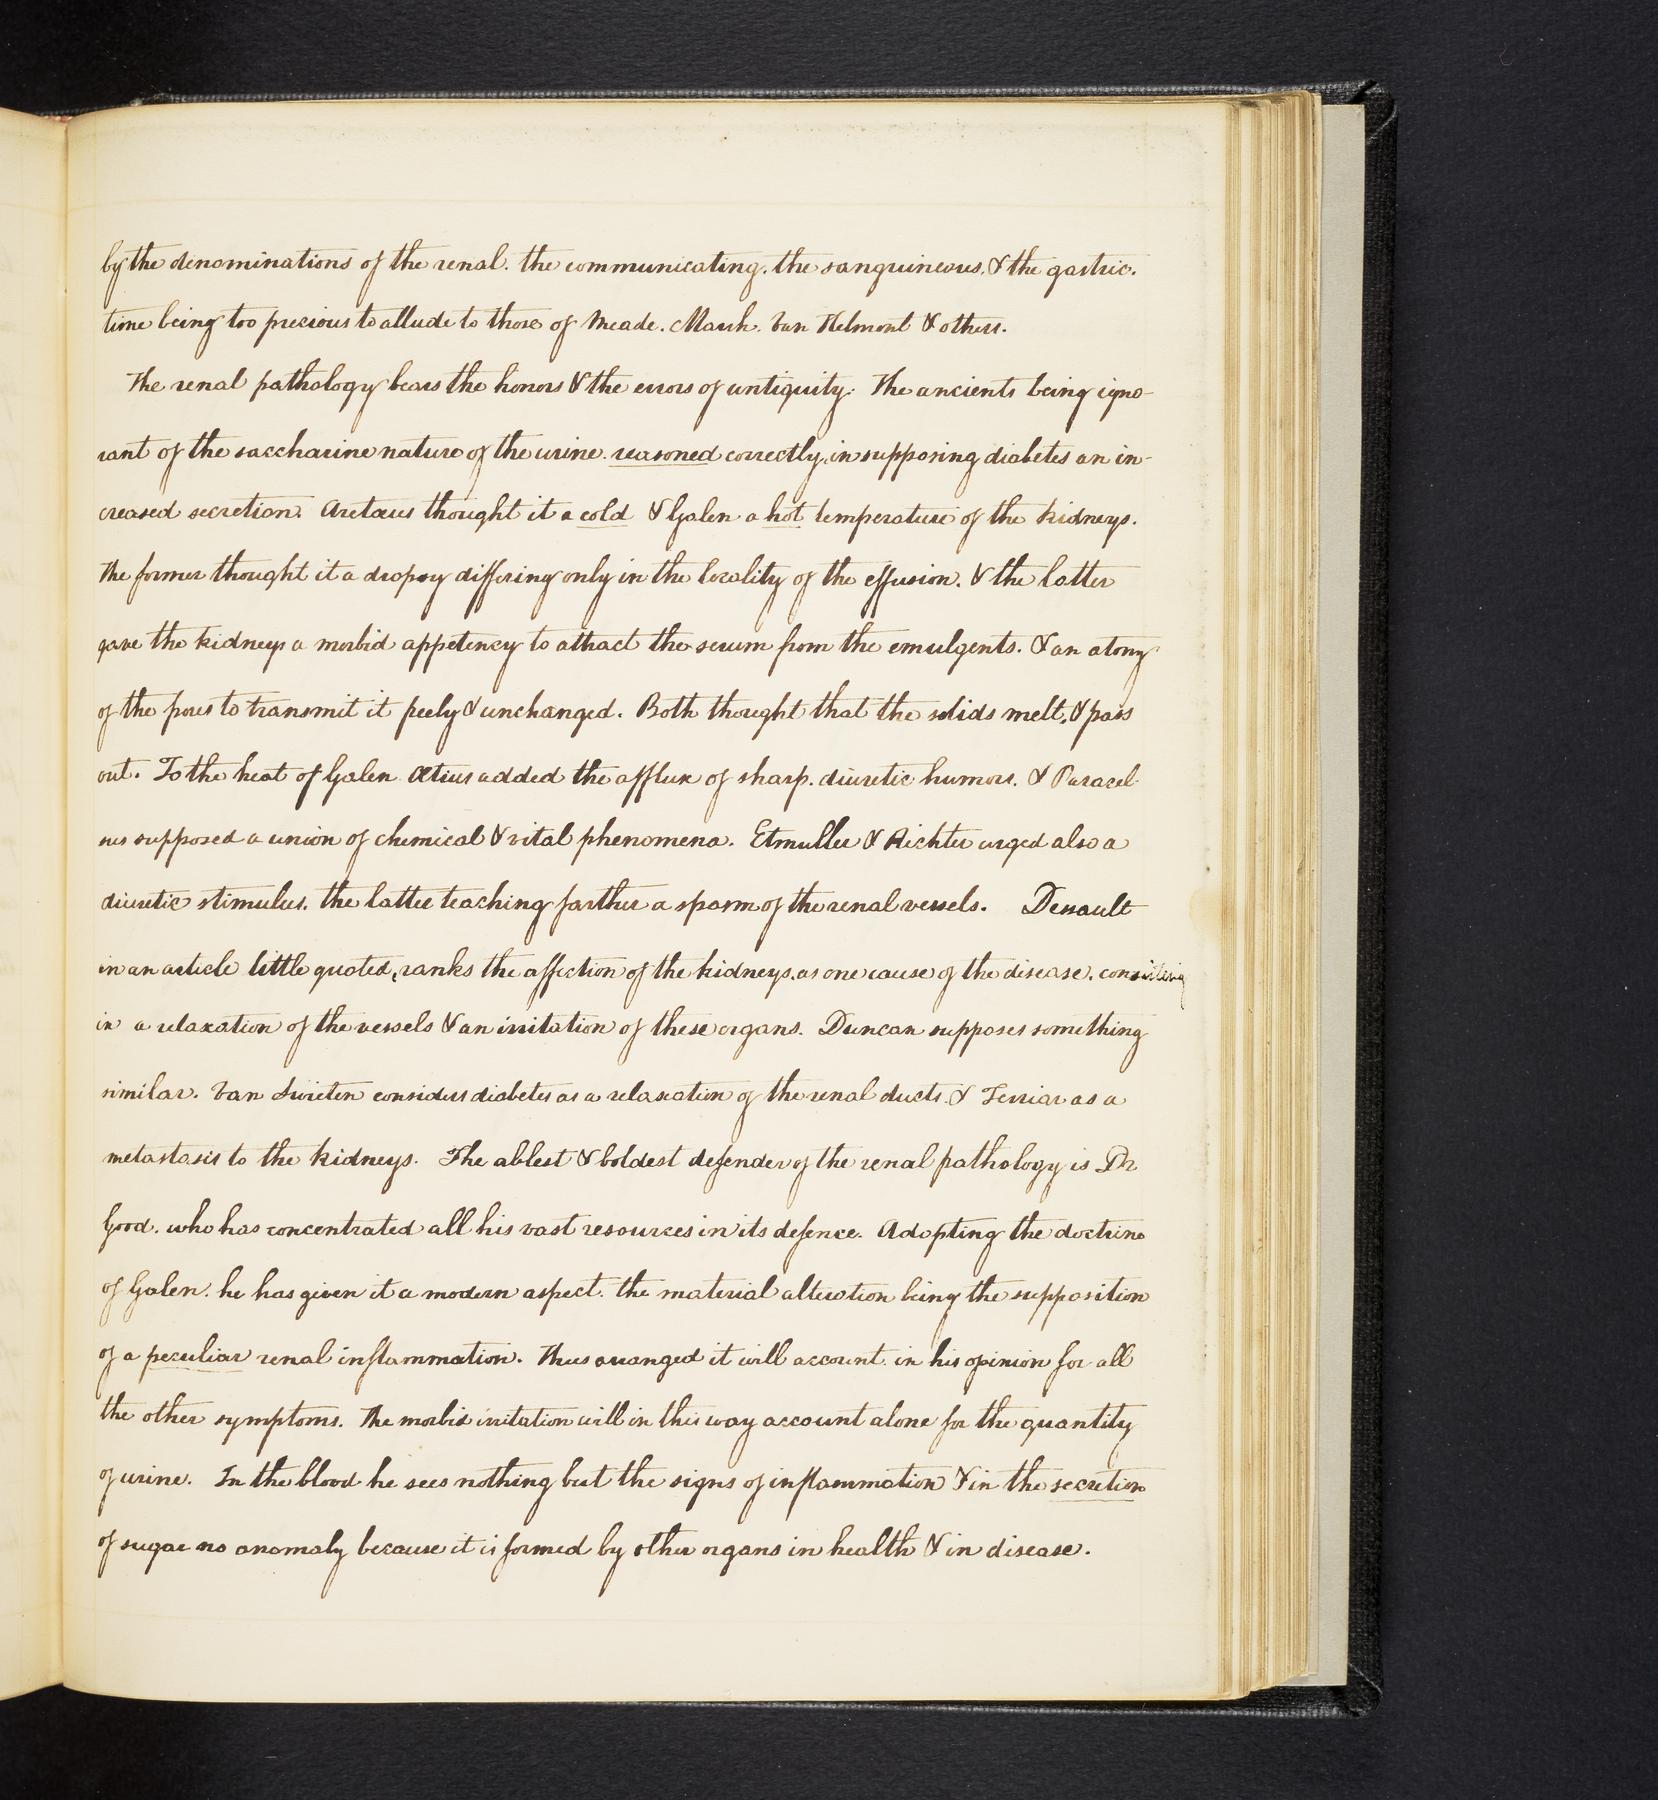 by the denominations of the renal. the communicating. the sanguineous. & the gastric.
time being too precious to allude to those of Meade. Marsh. Van Helmont & others.
The renal pathology bears the honors & the errors of antiquity. The ancients being igno-
rant of the saccharine nature of the urine. reasoned correctly, in supposing diabetes an in-
creased secretion. Aretaus thought it a cold & Galen a hot temperature of the kidneys.
The former thought it a dropsy differing only in the locality of the effusion. & the latter
gave the kidneys a morbid appetency to attract the serum from the emulgents. & an atony
of the pores to transmit it freely & unchanged. Both thought that the solids melt, & pass
out. To the heat of Galen Ætius added the afflux of sharp. diuretic humors. & Paracel-
sus supposed a union of chemical & vital phenomena. Etmuller & Richter urged also a
diuretic stimulus. the latter teaching farther a spasm of the renal vessels. Desault
in an article little quoted, ranks the affection of the kidneys. as one cause of the disease. consisting
in a relaxation of the vessels & an irritation of these organs. Duncan supposes something
similar. Van Swieten considers diabetes as a relaxation of the renal ducts. & Ferriar as a
metastasis to the kidneys. The ablest & boldest defender of the renal pathology is Dr
Good. who has concentrated all his vast resources in its defence. Adopting the doctrine
of Galen. he has given it a modern aspect. the material alteration being the supposition
of a peculiar renal inflammation. Thus arranged it will account. in his opinion for all
the other symptoms. The morbid irritation will in this way account alone for the quantity
of urine. In the blood he sees nothing but the signs of inflammation & in the secretion
of sugar no anomaly because it is formed by other organs in health & in disease.